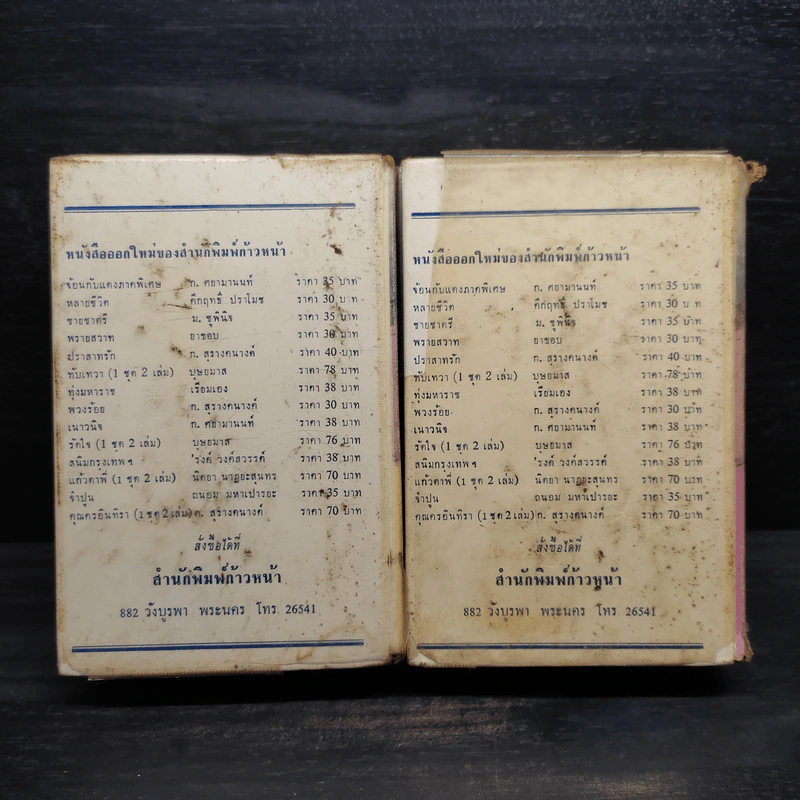 หนังสือออกใหม่ของสำนักพิมพ์ก้าวหน้า
ซ้อนกับแดงภาคพิเศษ ก. ศยามานนท์ ราคา 35 บาท
หลายชีวิต คึกฤทธิ์ ปราโมช ราคา 30 บาท
ชายชาตรี ม. ชูพินิจ ราคา 35 บาท
พรายสวาท ยาขอบ ราคา 30 บาท
ปราสาทรัก ก. สุรางคนางค์ ราคา 40 บาท
ทับเทวา (1 ชุด 2 เล่ม) บุษยมาส ราคา 78 บาท
ทุ่งมหาราช เรียมเอง ราคา 38 บาท
พวงร้อย ก. สุรางคนางค์ ราคา 30 บาท
เนาวนิจ ก. ศยามานนท์ ราคา 38 บาท
รัดใจ (1 ชุด 2 เล่ม) บุษยมาส ราคา 76 บาท
สนิมกรุงเทพฯ 'รงค์ วงค์สวรรค์ ราคา 38 บาท
แก้วตาพี่ (1 ชุด 2 เล่ม) นิตยา นาฏยะสุนทร ราคา 70 บาท
จำปูน ถนอม มหาเปารยะ ราคา 35 บาท
คุณครูอินทิรา (1 ชุด 2 เล่ม) ก. สุรางคนางค์ ราคา 70 บาท
สั่งซื้อได้ที่
สำนักพิมพ์ก้าวหน้า
882 วังบูรพา พระนคร โทร. 26541
หนังสือออกใหม่ของสำนักพิมพ์ก้าวหน้า
ซ้อนกับแดงภาคพิเศษ ก. ศยามานนท์ ราคา 35 บาท
หลายชีวิต คึกฤทธิ์ ปราโมช ราคา 30 บาท
ชายชาตรี ม. ชูพินิจ ราคา 35 บาท
พรายสวาท ยาขอบ ราคา 30 บาท
ปราสาทรัก ก. สุรางคนางค์ ราคา 40 บาท
ทับเทวา (1 ชุด 2 เล่ม) บุษยมาส ราคา 78 บาท
ทุ่งมหาราช เรียมเอง ราคา 38 บาท
พวงร้อย ก. สุรางคนางค์ ราคา 30 บาท
เนาวนิจ ก. ศยามานนท์ ราคา 38 บาท
รัดใจ (1 ชุด 2 เล่ม) บุษยมาส ราคา 76 บาท
สนิมกรุงเทพฯ 'รงค์ วงค์สวรรค์ ราคา 38 บาท
แก้วตาพี่ (1 ชุด 2 เล่ม) นิตยา นาฏยะสุนทร ราคา 70 บาท
จำปูน ถนอม มหาเปารยะ ราคา 35 บาท
คุณครูอินทิรา (1 ชุด 2 เล่ม) ก. สุรางคนางค์ ราคา 70 บาท
สั่งซื้อได้ที่
สำนักพิมพ์ก้าวหน้า
882 วังบูรพา พระนคร โทร 26541